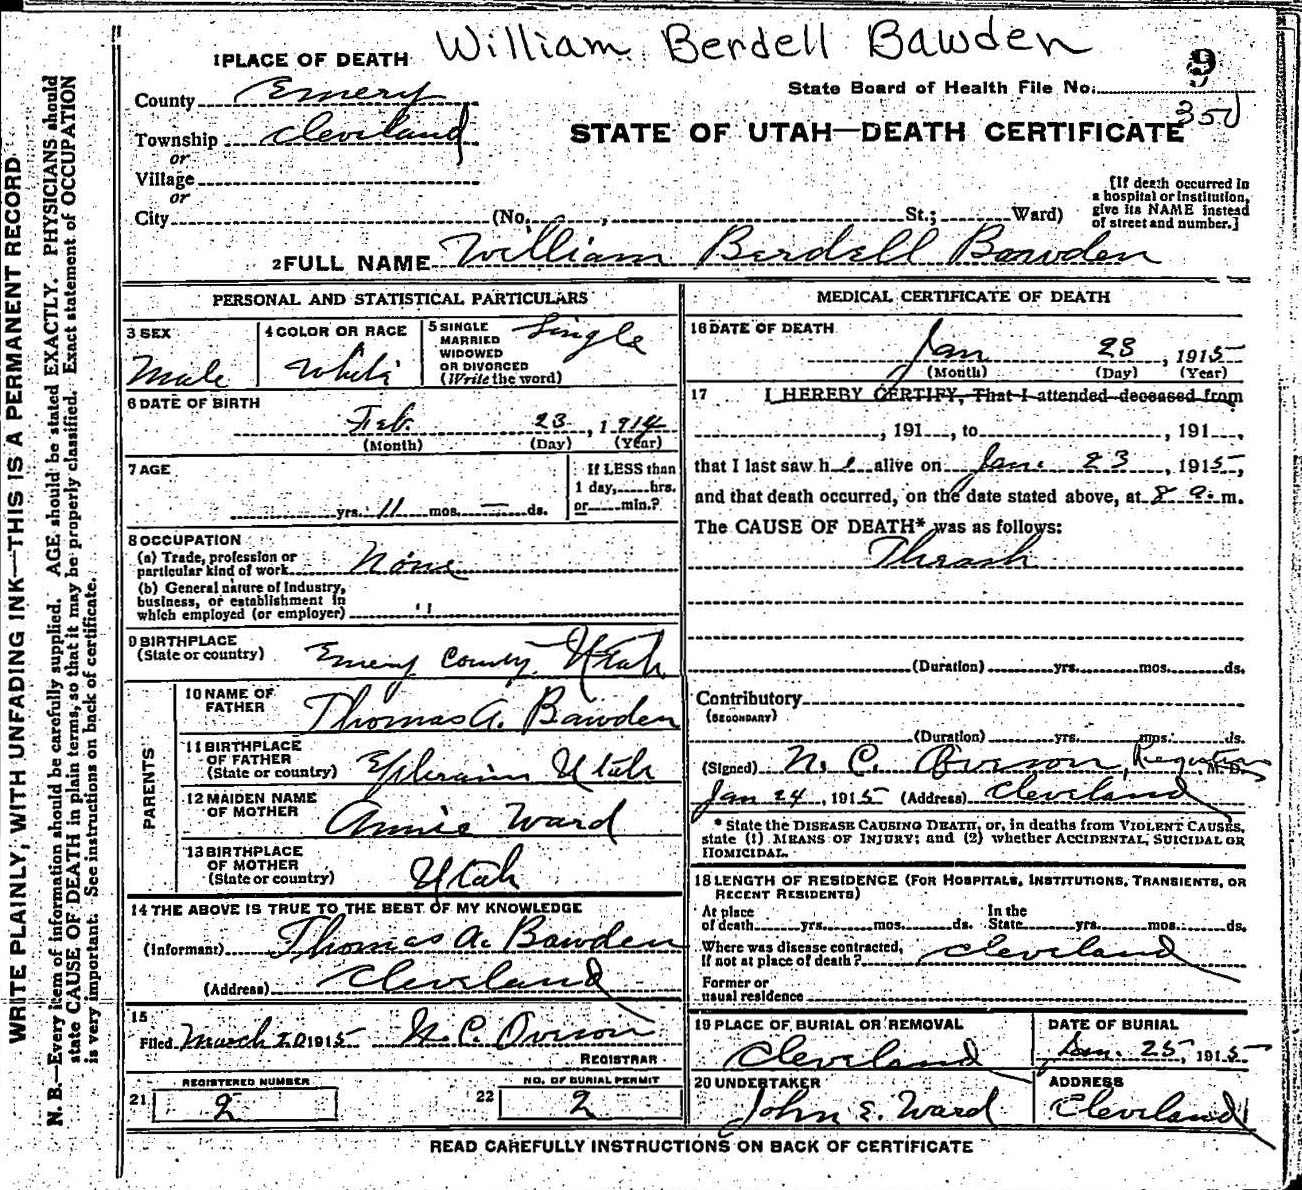 William Berdell Bawden
1 PLACE OF DEATH
9
State Board of Health File No.
350
County Emery
Township Cleveland
STATE OF UTAH—DEATH CERTIFICATE
or
Village
or
City (No. , St.; Ward)
[If death occurred in a hospital or institution, give its NAME instead of street and number.]
2 FULL NAME William Berdell Bawden
PERSONAL AND STATISTICAL PARTICULARS
3 SEX
Male
4 COLOR OR RACE
White
5 SINGLE
MARRIED
WIDOWED
OR DIVORCED
(Write the word)
Single
6 DATE OF BIRTH
Feb. 23, 1914
(Month) (Day) (Year)
7 AGE
yrs. 11 mos. — ds.
If LESS than
1 day, hrs.
or min.?
8 OCCUPATION
(a) Trade, profession or
particular kind of work None
(b) General nature of Industry,
business, or establishment in
which employed (or employer) "
9 BIRTHPLACE
(State or country) Emery County, Utah
PARENTS
10 NAME OF
FATHER Thomas A. Bawden
11 BIRTHPLACE
OF FATHER
(State or country) Ephraim Utah
12 MAIDEN NAME
OF MOTHER Annie Ward
13 BIRTHPLACE
OF MOTHER
(State or country) Utah
14 THE ABOVE IS TRUE TO THE BEST OF MY KNOWLEDGE
(Informant) Thomas A. Bawden
(Address) Cleveland
15
Filed March 20 1915 N. C. Overson
REGISTRAR
21 REGISTERED NUMBER
2
22 NO. OF BURIAL PERMIT
2
MEDICAL CERTIFICATE OF DEATH
16 DATE OF DEATH
Jan 23, 1915
(Month) (Day) (Year)
17 I HEREBY CERTIFY, That I attended deceased from
, 191 , to , 191 ,
that I last saw h alive on Jan. 23, 1915,
and that death occurred, on the date stated above, at 8 a. m.
The CAUSE OF DEATH* was as follows:
Thrash
(Duration) yrs. mos. ds.
Contributory
(SECONDARY)
(Duration) yrs. mos. ds.
(Signed) N. C. Overson, Registrar M. D.
Jan 24, 1915 (Address) Cleveland
* State the DISEASE CAUSING DEATH, or, in deaths from VIOLENT CAUSES,
state (1) MEANS OF INJURY; and (2) whether ACCIDENTAL, SUICIDAL OR
HOMICIDAL.
18 LENGTH OF RESIDENCE (FOR HOSPITALS, INSTITUTIONS, TRANSIENTS, OR
RECENT RESIDENTS)
At place
of death yrs. mos. ds. In the
State yrs. mos. ds.
Where was disease contracted,
If not at place of death? Cleveland
Former or
usual residence
19 PLACE OF BURIAL OR REMOVAL
Cleveland
DATE OF BURIAL
Jan. 25, 1915
20 UNDERTAKER
John E. Ward
ADDRESS
Cleveland
READ CAREFULLY INSTRUCTIONS ON BACK OF CERTIFICATE
WRITE PLAINLY, WITH UNFADING INK—THIS IS A PERMANENT RECORD
N. B.—Every item of information should be carefully supplied. AGE should be stated EXACTLY. PHYSICIANS should
state CAUSE OF DEATH in plain terms, so that it may be properly classified. Exact statement of OCCUPATION
is very important. See instructions on back of certificate.